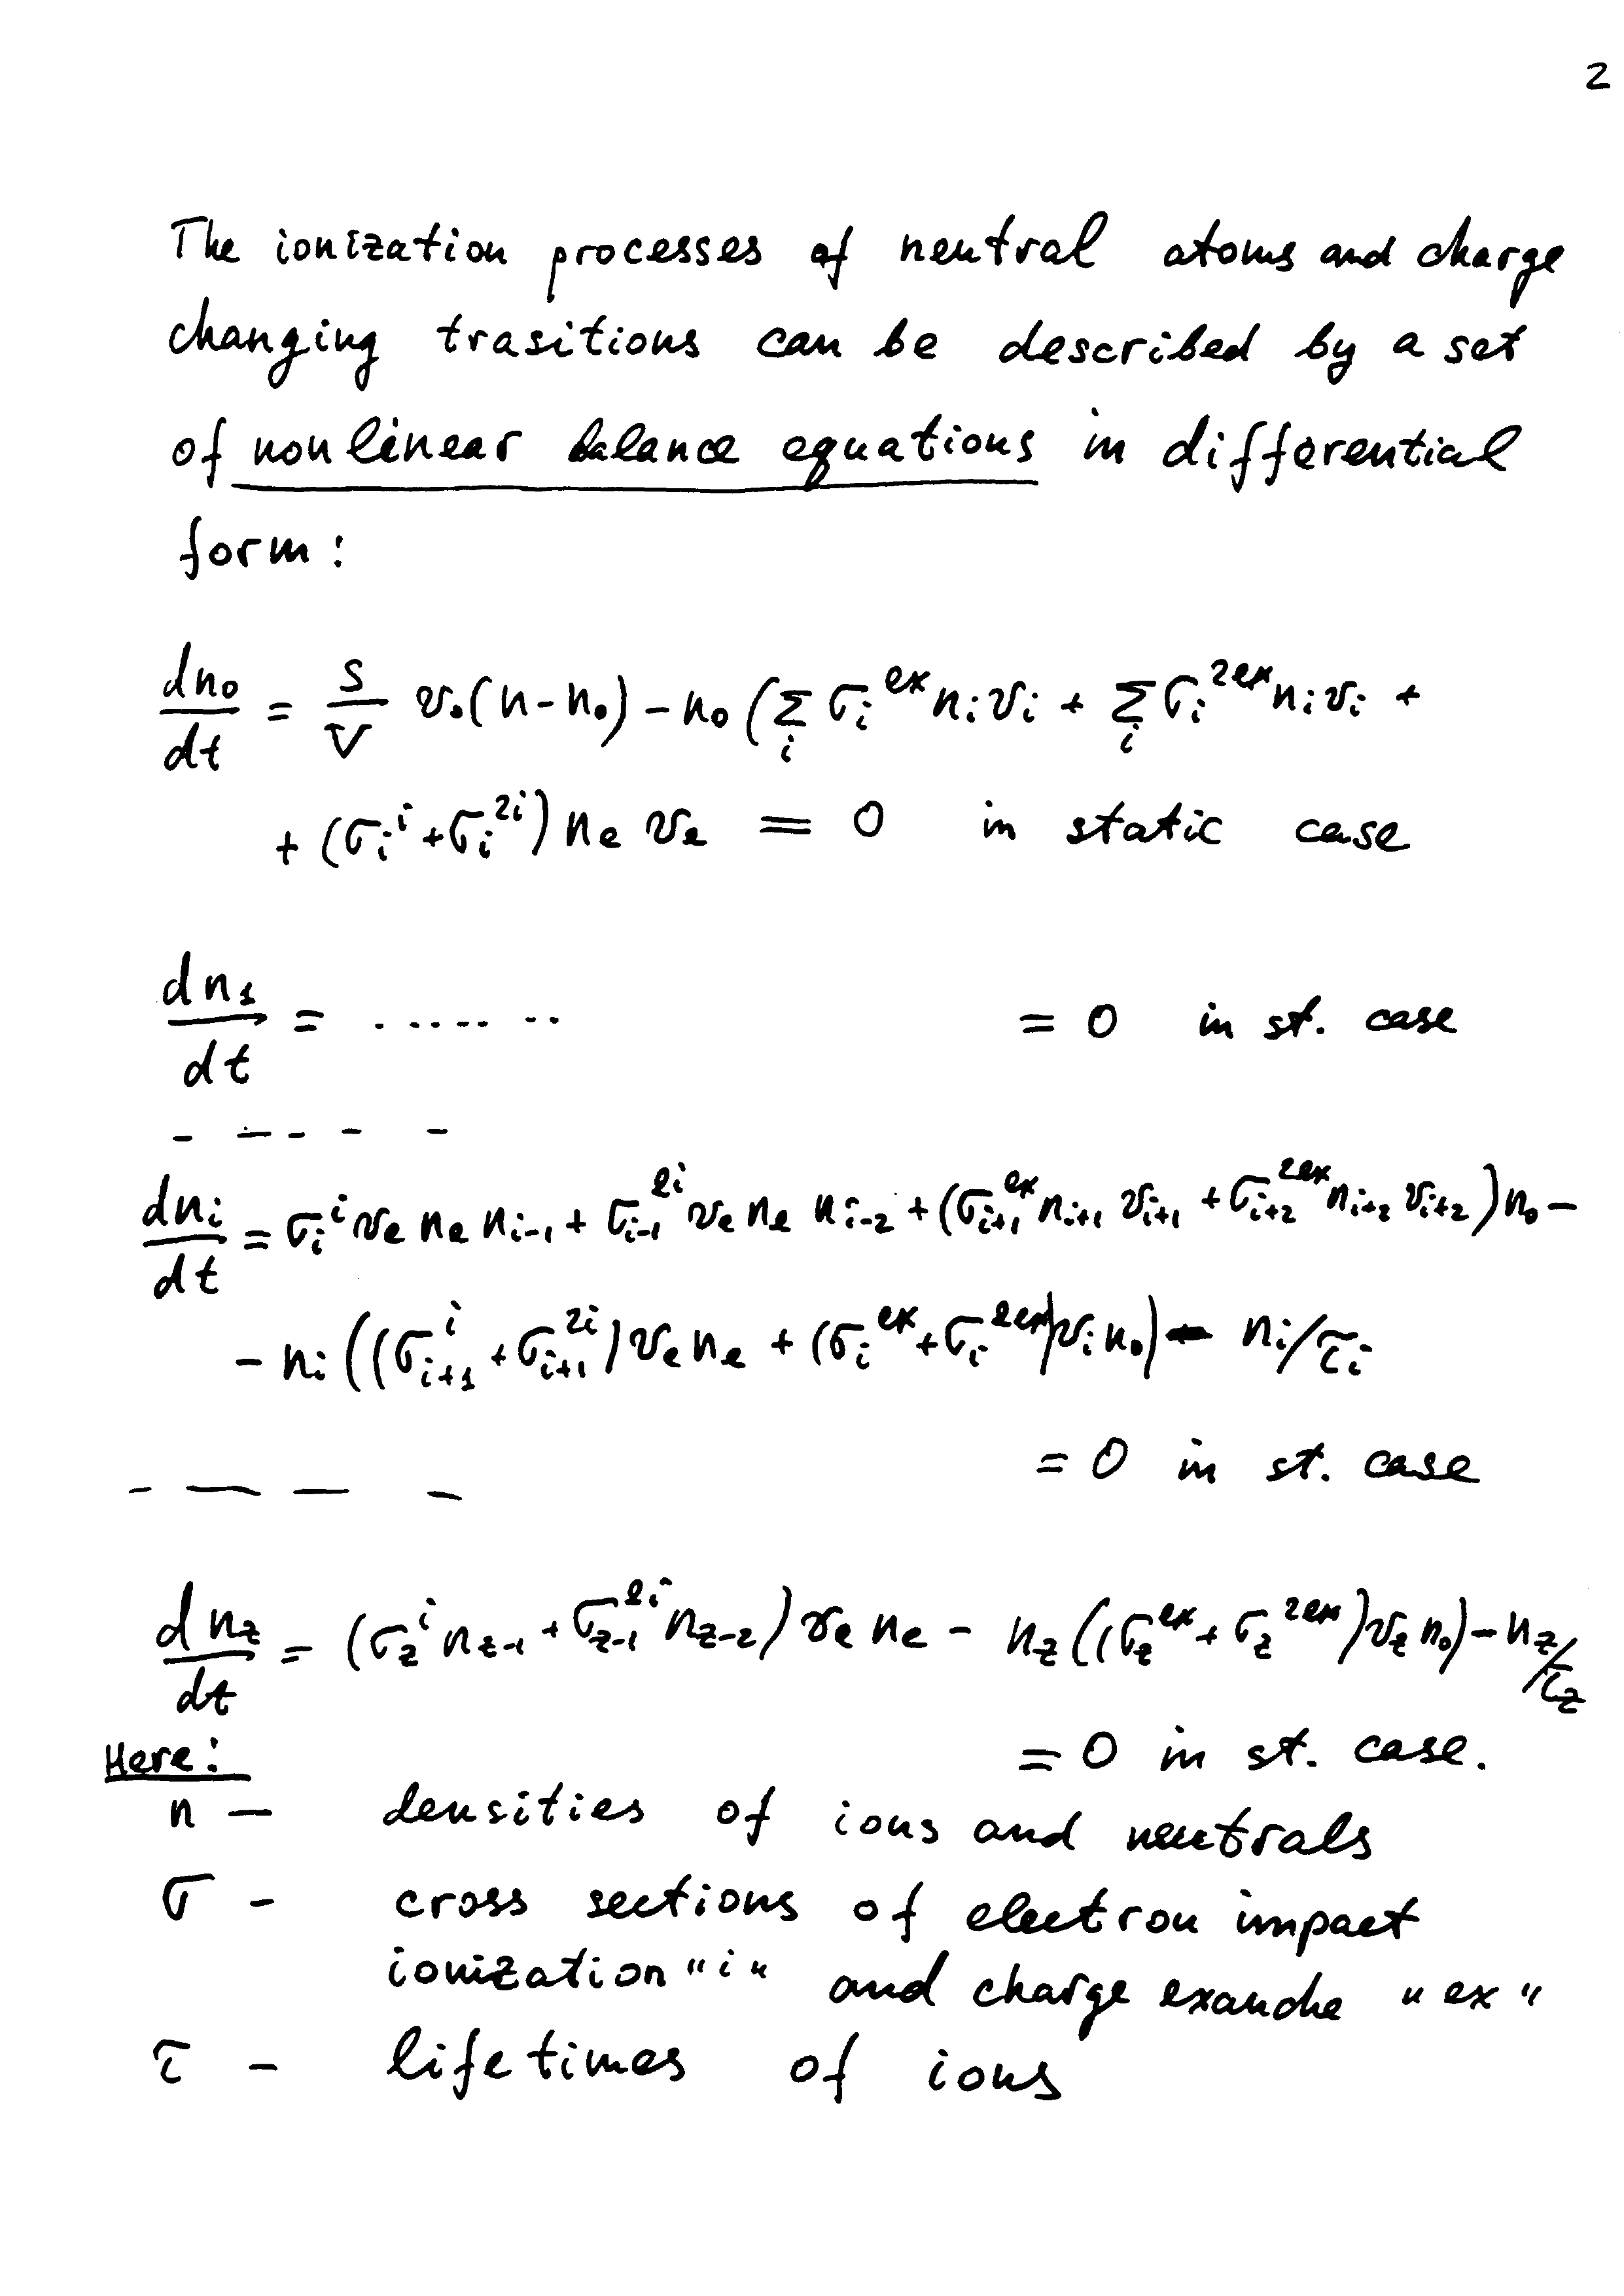 2
The ionization processes of neutral atoms and charge
changing trasitions can be described by a set
of nonlinear balance equations in differential
form:
dn₀/dt = S/V v₀(n-n₀) - n₀(∑ᵢ σᵢ^ex nᵢvᵢ + ∑ᵢ σᵢ^2ex nᵢvᵢ +
+ (σᵢ^i + σᵢ^2i) nₑ vₑ = 0 in static case
dn₁/dt = ....... = 0 in st. case
- - - - -
dnᵢ/dt = σᵢ^i vₑ nₑ nᵢ₋₁ + σᵢ₋₁^2i vₑ nₑ nᵢ₋₂ + (σᵢ₊₁^ex nᵢ₊₁ vᵢ₊₁ + σᵢ₊₂^2ex nᵢ₊₂ vᵢ₊₂) n₀ -
- nᵢ((σᵢ₊₁^i + σᵢ₊₁^2i) vₑ nₑ + (σᵢ^ex + σᵢ^2ex) vᵢ n₀) - nᵢ/τᵢ
= 0 in st. case
- - - -
dn_z/dt = (σ_z^i n_z-1 + σ_z-1^2i n_z-2) vₑ nₑ - n_z((σ_z^ex + σ_z^2ex) v_z n₀) - n_z/τ_z
= 0 in st. case.
Here:
n - densities of ions and neutrals
σ - cross sections of electron impact
ionization "i" and charge exanche "ex"
τ - lifetimes of ions